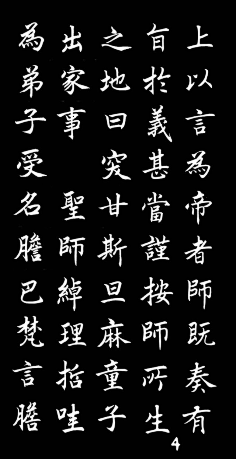 上以言為帝者師既奏有
旨於義甚當謹按師所生
之地曰突甘斯旦麻童子
出家事聖師綽理哲哇
為弟子受名膽巴梵言膽
4